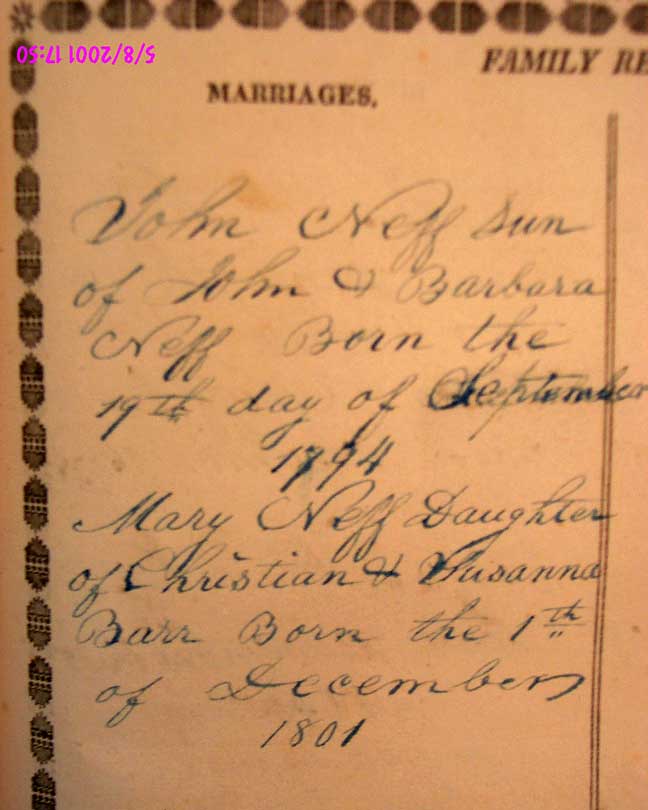 5/8/2001 17:50
FAMILY RE
MARRIAGES.
John Neff Sun
of John & Barbara
Neff Born the
19th day of September
1794
Mary Neff Daughter
of Christian & Susanna
Barr Born the 1th
of December
1801